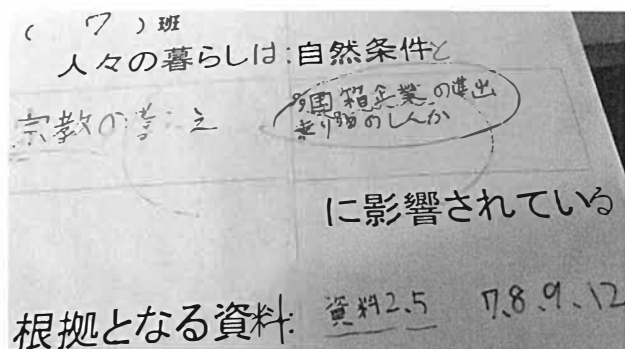 ( 7 ) 班
人々の暮らしは:自然条件と
宗教の考え
多国籍企業の進出
乗り物のしんか
に影響されている
根拠となる資料: 資料2、5 7、8、9、12